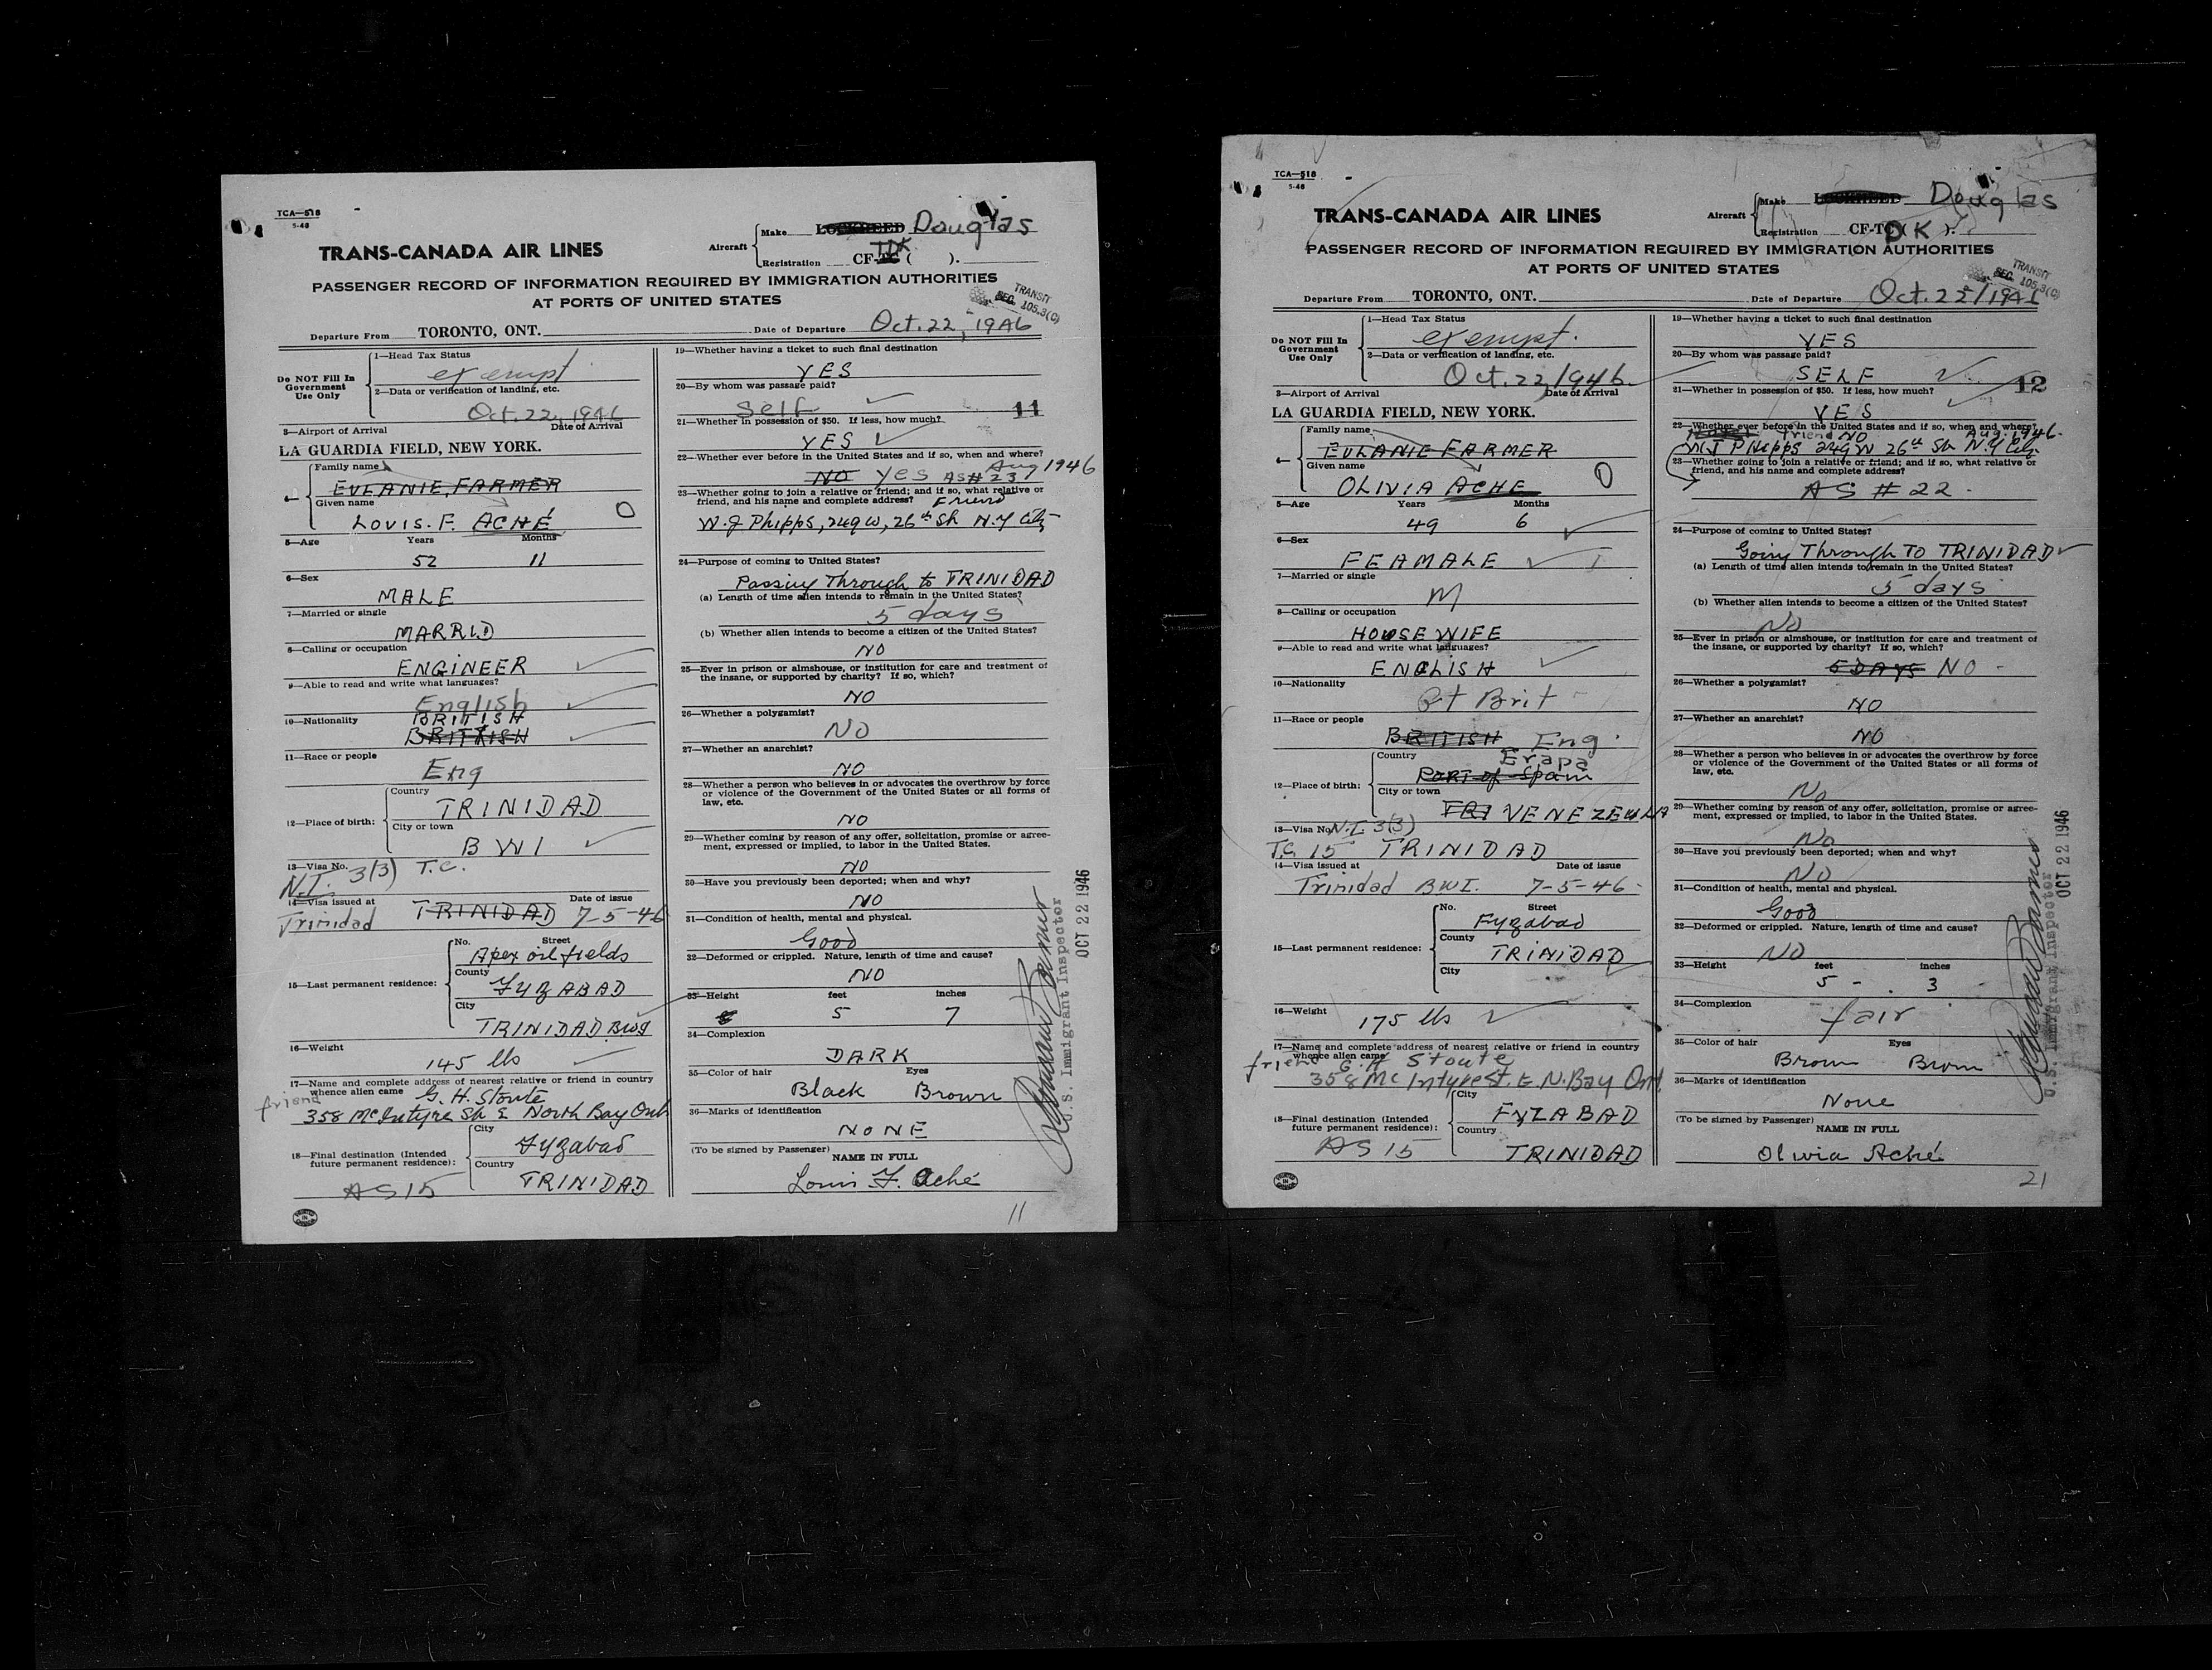 TCA—518
5-46
TRANS-CANADA AIR LINES
Aircraft
Make LOCKHEED Douglas
Registration CF-TC ( ). TDK
PASSENGER RECORD OF INFORMATION REQUIRED BY IMMIGRATION AUTHORITIES
AT PORTS OF UNITED STATES
TRANSIT
SEC. 105.3(C)
Departure From TORONTO, ONT. Date of Departure Oct. 22, 1946
Do NOT Fill In
Government
Use Only
1—Head Tax Status
exempt
2—Data or verification of landing, etc.
Oct. 22, 1946
3—Airport of Arrival Date of Arrival
LA GUARDIA FIELD, NEW YORK.
4—
Family name
EULANIE, FARMER
Given name
LOUIS. F. ACHÉ O
5—Age Years Months
52 11
6—Sex
MALE
7—Married or single
MARRID
8—Calling or occupation
ENGINEER
9—Able to read and write what languages?
English
10—Nationality BRITISH
BRITISH
11—Race or people
Eng
12—Place of birth:
Country
TRINIDAD
City or town
B W I
13—Visa No. T.C.
N.I. 3(3)
14—Visa issued at Date of issue
Trinidad TRINIDAD 7-5-46
15—Last permanent residence:
No. Street
Apex oil fields
County
FYZABAD
City
TRINIDAD BWI
16—Weight
145 lbs
17—Name and complete address of nearest relative or friend in country
whence alien came G. H. Stoute
friend
358 McIntyre St E North Bay Ont
18—Final destination (Intended
future permanent residence):
City
Fyzabad
Country
TRINIDAD
AS 15
19—Whether having a ticket to such final destination
YES
20—By whom was passage paid?
Self
11
21—Whether in possession of $50. If less, how much?
YES
22—Whether ever before in the United States and if so, when and where?
NO Yes AS# 23 Aug 1946
23—Whether going to join a relative or friend; and if so, what relative or
friend, and his name and complete address? Friend
W. J Phipps, 249 W, 26th St N.Y City
24—Purpose of coming to United States?
Passing Through to TRINIDAD
(a) Length of time alien intends to remain in the United States?
5 days
(b) Whether alien intends to become a citizen of the United States?
NO
25—Ever in prison or almshouse, or institution for care and treatment of
the insane, or supported by charity? If so, which?
NO
26—Whether a polygamist?
NO
27—Whether an anarchist?
NO
28—Whether a person who believes in or advocates the overthrow by force
or violence of the Government of the United States or all forms of
law, etc.
NO
29—Whether coming by reason of any offer, solicitation, promise or agree-
ment, expressed or implied, to labor in the United States.
NO
30—Have you previously been deported; when and why?
NO
31—Condition of health, mental and physical.
Good
32—Deformed or crippled. Nature, length of time and cause?
NO
33—Height feet inches
5 7
34—Complexion
DARK
35—Color of hair Eyes
Black Brown
36—Marks of identification
NONE
(To be signed by Passenger)
NAME IN FULL
Louis F. Aché
U.S. Immigrant Inspector
OCT 22 1946
11
TCA—518
5-46
TRANS-CANADA AIR LINES
Aircraft
Make LOCKHEED Douglas
Registration CF-TC ( ). DK
PASSENGER RECORD OF INFORMATION REQUIRED BY IMMIGRATION AUTHORITIES
AT PORTS OF UNITED STATES
TRANSIT
SEC. 105.3(C)
Departure From TORONTO, ONT. Date of Departure Oct. 22/1946
Do NOT Fill In
Government
Use Only
1—Head Tax Status
exempt.
2—Data or verification of landing, etc.
Oct. 22, 1946.
3—Airport of Arrival Date of Arrival
LA GUARDIA FIELD, NEW YORK.
4—
Family name
EULANIE FARMER
Given name
OLIVIA ACHE O
5—Age Years Months
49 6
6—Sex
FEAMALE
7—Married or single
M
8—Calling or occupation
HOUSE WIFE
9—Able to read and write what languages?
ENGLISH
10—Nationality
Gt Brit
11—Race or people
BRITISH Eng.
12—Place of birth:
Country Erapa
PORT of Spain
City or town
TRI VENEZEULA
13—Visa No. N.I. 3(3)
T.C. 15 TRINIDAD
14—Visa issued at Date of issue
Trinidad BWI. 7-5-46-
15—Last permanent residence:
No. Street
Fyzabad
County
TRINIDAD
City
16—Weight
175 lbs
17—Name and complete address of nearest relative or friend in country
whence alien came
friend G. H Stoute
358 McIntyre St. E N. Bay Ont.
18—Final destination (Intended
future permanent residence):
City
FYZABAD
Country
TRINIDAD
AS 15
19—Whether having a ticket to such final destination
YES
20—By whom was passage paid?
SELF
12
21—Whether in possession of $50. If less, how much?
YES
22—Whether ever before in the United States and if so, when and where?
friend NO Aug. 1946.
W J Phipps 249 W 26th St N.Y City.
23—Whether going to join a relative or friend; and if so, what relative or
friend, and his name and complete address?
AS # 22.
24—Purpose of coming to United States?
Going Through TO TRINIDAD
(a) Length of time alien intends to remain in the United States?
5 days
(b) Whether alien intends to become a citizen of the United States?
NO
25—Ever in prison or almshouse, or institution for care and treatment of
the insane, or supported by charity? If so, which?
5 DAYS NO -
26—Whether a polygamist?
NO
27—Whether an anarchist?
NO
28—Whether a person who believes in or advocates the overthrow by force
or violence of the Government of the United States or all forms of
law, etc.
No
29—Whether coming by reason of any offer, solicitation, promise or agree-
ment, expressed or implied, to labor in the United States.
No
30—Have you previously been deported; when and why?
NO
31—Condition of health, mental and physical.
Good
32—Deformed or crippled. Nature, length of time and cause?
NO
33—Height feet inches
5 - . 3
34—Complexion
fair
35—Color of hair Eyes
Brown Brown
36—Marks of identification
None
(To be signed by Passenger)
NAME IN FULL
Olivia Aché
U.S. Immigrant Inspector
OCT 22 1946
21